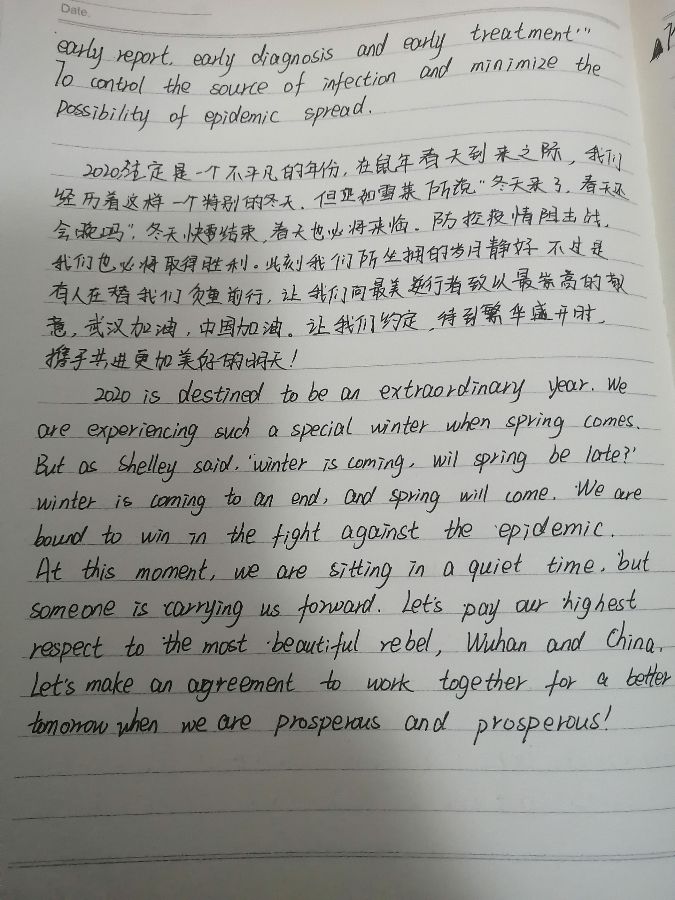 Date.
early report. early diagnosis and early treatment...
To control the source of infection and minimize the
possibility of epidemic spread.
2020注定是一个不平凡的年份，在鼠年春天到来之际，我们
经历着这样一个特别的冬天，但正如雪莱所说"冬天来了，春天还
会晚吗"，冬天快要结束，春天也必将来临。防控疫情阻击战，
我们也必将取得胜利。此刻我们所坐拥的岁月静好 不过是
有人在替我们负重前行，让我们向最美逆行者致以最崇高的敬
意，武汉加油，中国加油。让我们约定，待到繁华盛开时，
携手共进更加美好的明天！
2020 is destined to be an extraordinary year. We
are experiencing such a special winter when spring comes.
But as Shelley said, "winter is coming, wil spring be late?"
winter is coming to an end, and spring will come. We are
bound to win in the fight against the epidemic.
At this moment, we are sitting in a quiet time, but
someone is carrying us forward. Let's pay our highest
respect to the most beautiful rebel, Wuhan and China.
Let's make an agreement to work together for a better
tomorrow when we are prosperous and prosperous!